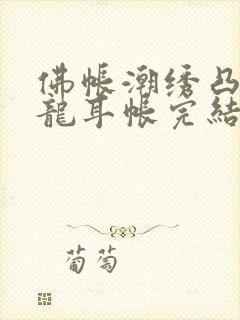 佛帐潮绣凸
龍耳帐完結
葡萄